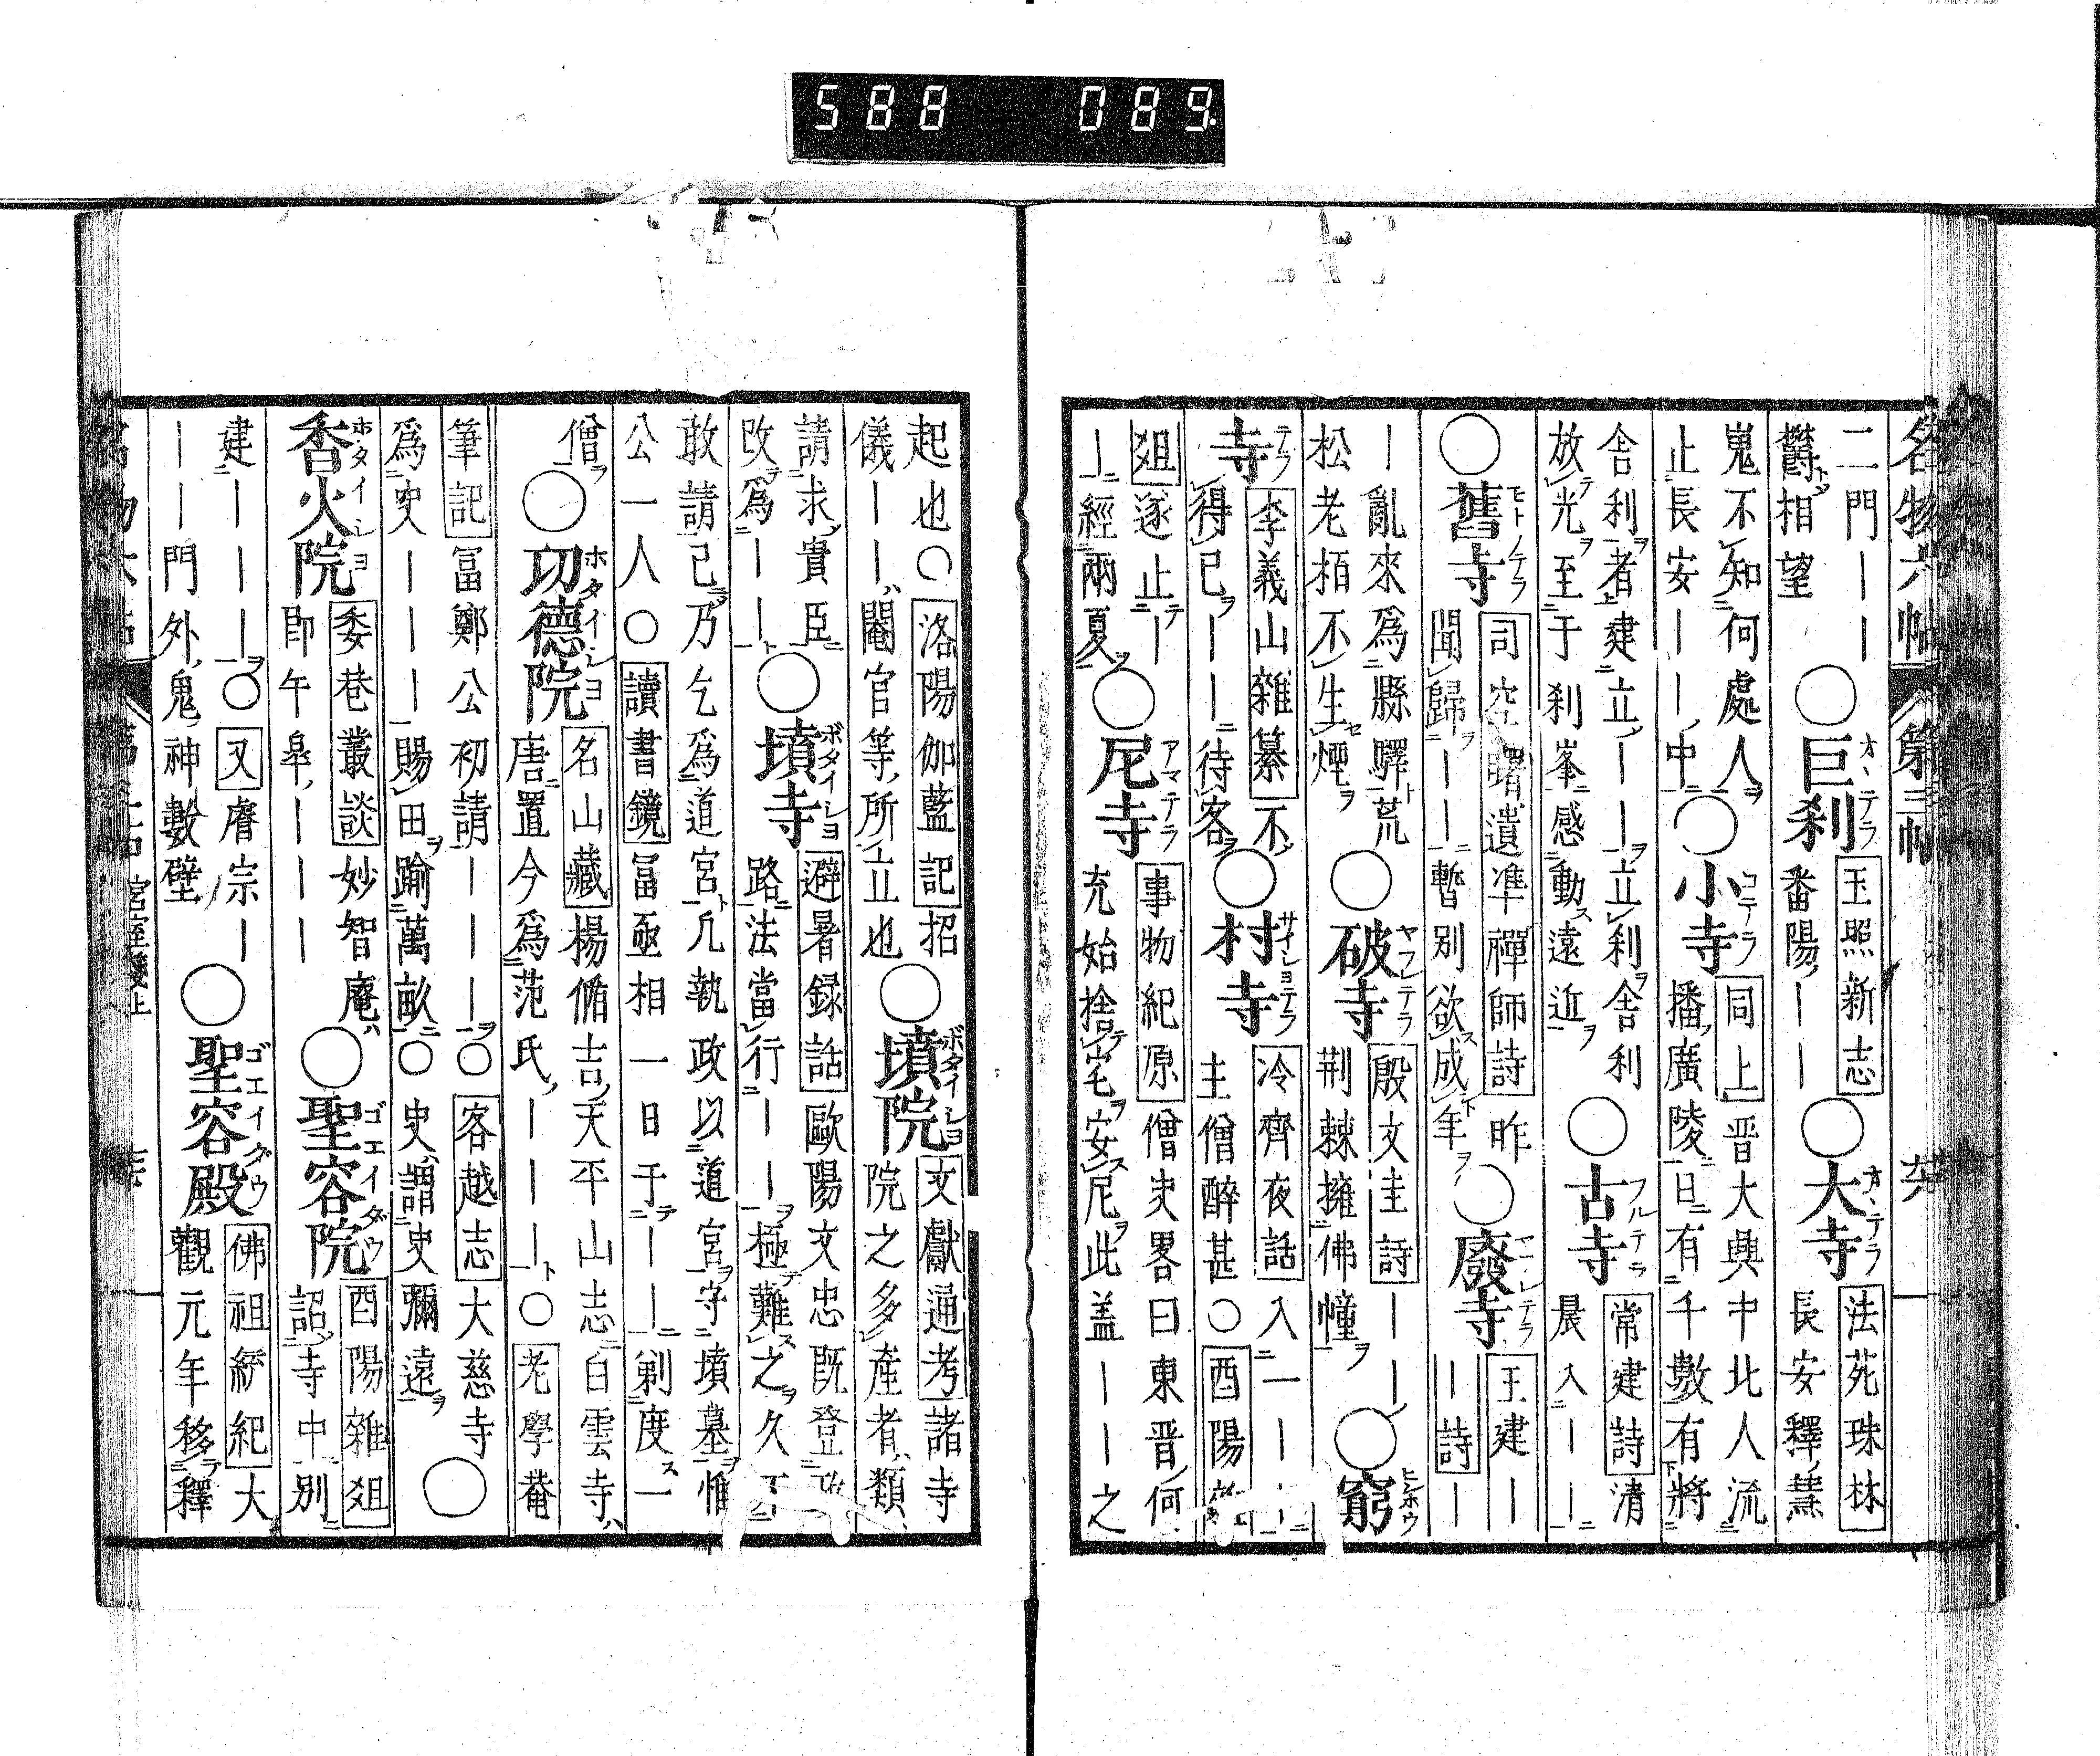 588 089.
名物六帖 第三帖 六
二門｜｜｜
鬱相望
○巨刹 オヽテラ
王照新志
番陽｜｜
○大寺 オヽテラ
法苑珠林
長安釋慧
嵬不知何處人
止長安｜｜中
○小寺 コテラ
同上晋大興中北人流
播廣陵日有千數有將
舍利者建立｜｜立刹舍利
放光至于刹峯感動遠近
○古寺 フルテラ
常建詩清
晨入｜｜
○舊寺 モトノテラ
司空曙遺準禪師詩昨
聞歸｜｜暫別欲成年
○廢寺
王建｜
｜｜詩｜
｜亂來爲縣驛荒
松老栢不生煙
○破寺 ヤフレテラ
殷文圭詩｜｜
荆棘擁佛幢
○窮
寺
李義山雜纂不
得已｜｜待客
○村寺 サイシヨテラ
冷齊夜話入一｜｜
主僧醉甚○酉陽雜
爼遂止｜
｜經兩夏
○尼寺 アマテラ
事物紀原僧史畧曰東晋何
充始捨宅安尼此盖｜｜之
起也○洛陽伽藍記招
儀｜｜閹官等所立也
○墳院 ボタイシヨ
文獻通考諸寺
院之多産者類
請求貴臣
改爲｜｜
○墳寺 ボタイシヨ
避暑録話歐陽文忠既登政
路法當行｜｜極難之久不
敢請已乃乞爲道宮凢執政以道宮守墳墓惟
公一人○讀書鏡冨亟相一日于｜｜剃度一
僧
○功德院 ホタイシヨ
名山藏楊脩吉天平山志白雲寺
唐置今爲范氏｜｜｜○老學菴
筆記冨鄭公初請｜｜｜○客越志大慈寺
爲史｜｜｜賜田踰萬畝○史謂史彌遠
○香火院 ホタイシヨ
委巷叢談妙智庵
即午皐｜｜｜
○聖容院 ゴエイダウ
酉陽雜爼
詔寺中別
建｜｜｜○又睿宗｜
｜｜門外鬼神數壁
○聖容殿 ゴエイダウ
佛祖統紀大
觀元年移釋
宮室箋上